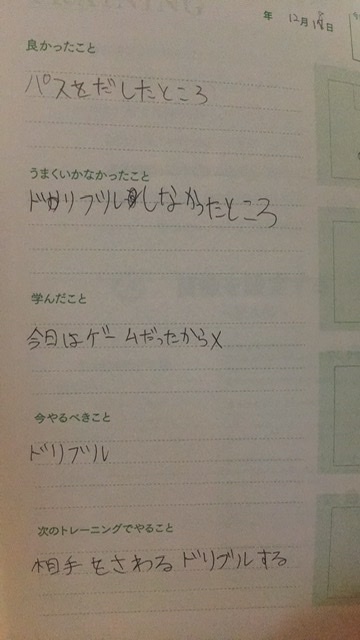 年 12月18日
良かったこと
パスをだしたところ
うまくいかなかったこと
ドリブルしなかったところ
学んだこと
今日はゲームだったからx
今やるべきこと
ドリブル
次のトレーニングでやること
相手をさわる ドリブルする